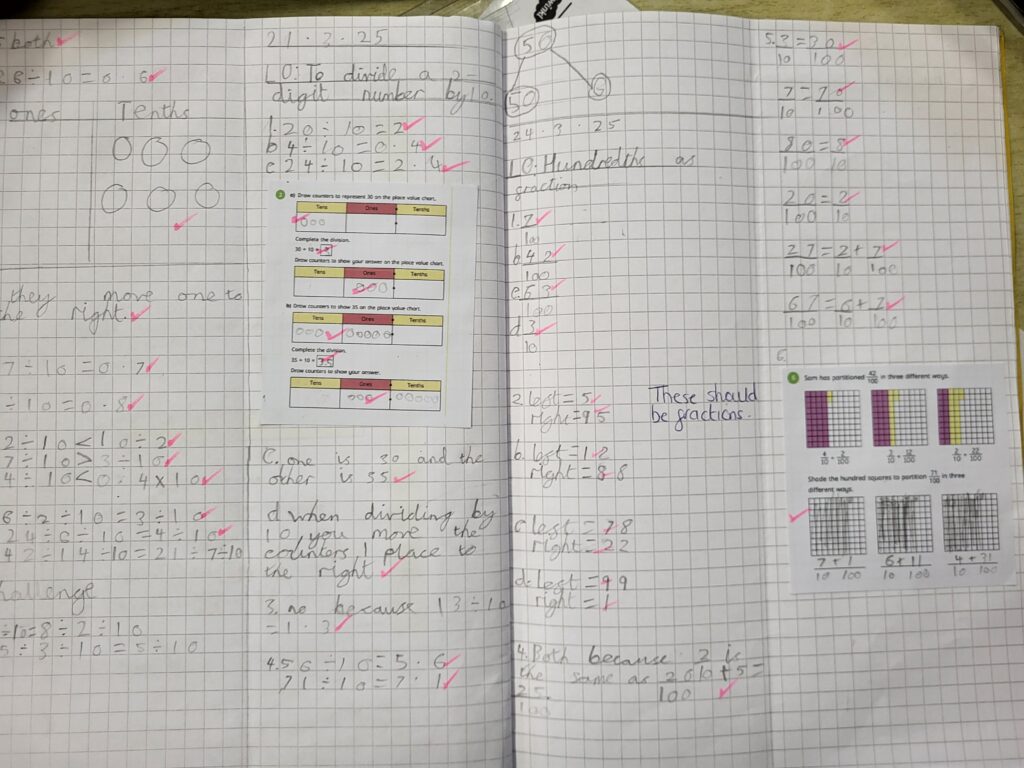 both
28÷10=0.6
ones Tenths
they move one to
the right.
7÷10=0.7
÷10=0.8
2÷10<10÷2
7÷10>3÷10
4÷10<0.4×10
6÷2÷10=3÷10
24÷6÷10=4÷10
42÷14÷10=21÷7÷10
hallenge
÷10=8÷2÷10
5÷3÷10=5÷10
21.3.25
LO: To divide a 2-
digit number by 10.
1. 20÷10=2
b 4÷10=0.4
c 24÷10=2.4
2 a) Draw counters to represent 30 on the place value chart.
Tens Ones Tenths
Complete the division.
30 ÷ 10 = 3
Draw counters to show your answer on the place value chart.
Tens Ones Tenths
b) Draw counters to show 35 on the place value chart.
Tens Ones Tenths
Complete the division.
35 ÷ 10 = 3.5
Draw counters to show your answer.
Tens Ones Tenths
C. one is 30 and the
other is 35
d when dividing by
10, you move the
counters 1 place to
the right
3. no because 13÷10
=1.3
4. 56÷10=5.6
71÷10=7.1
50
50 0
24.3.25
LO: Hundredths as
fraction
1. 7
10
b 42
100
c. 53
100
d 3
10
2 left = 5
right = 95
b. left = 12
right = 88
c left = 78
right = 22
d. left = 99
right = 1
These should
be fractions.
4. Both because 2 is
the same as 20 10 + 5 =
25. 100
100
5. 3 = 30
10 100
7 = 70
10 100
80 = 8
100 10
20 = 2
100 10
27 = 2 + 7
100 10 100
67 = 6 + 7
100 10 100
6.
6 Sam has partitioned 42/100 in three different ways.
4/10 + 2/100 3/10 + 12/100 2/10 + 22/100
Shade the hundred squares to partition 71/100 in three
different ways.
7 + 1 6 + 11 4 + 31
10 100 10 100 10 100